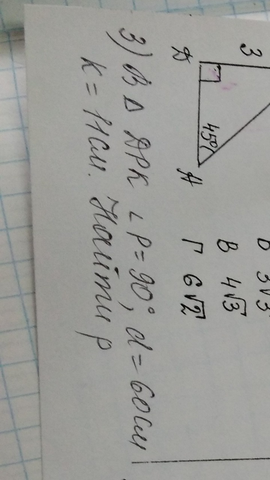 З
Д
45°
А
В 4√3
Г 6√2
3) В Δ ДРК ∠P=90°, d=60см
К = 11см. Найти р